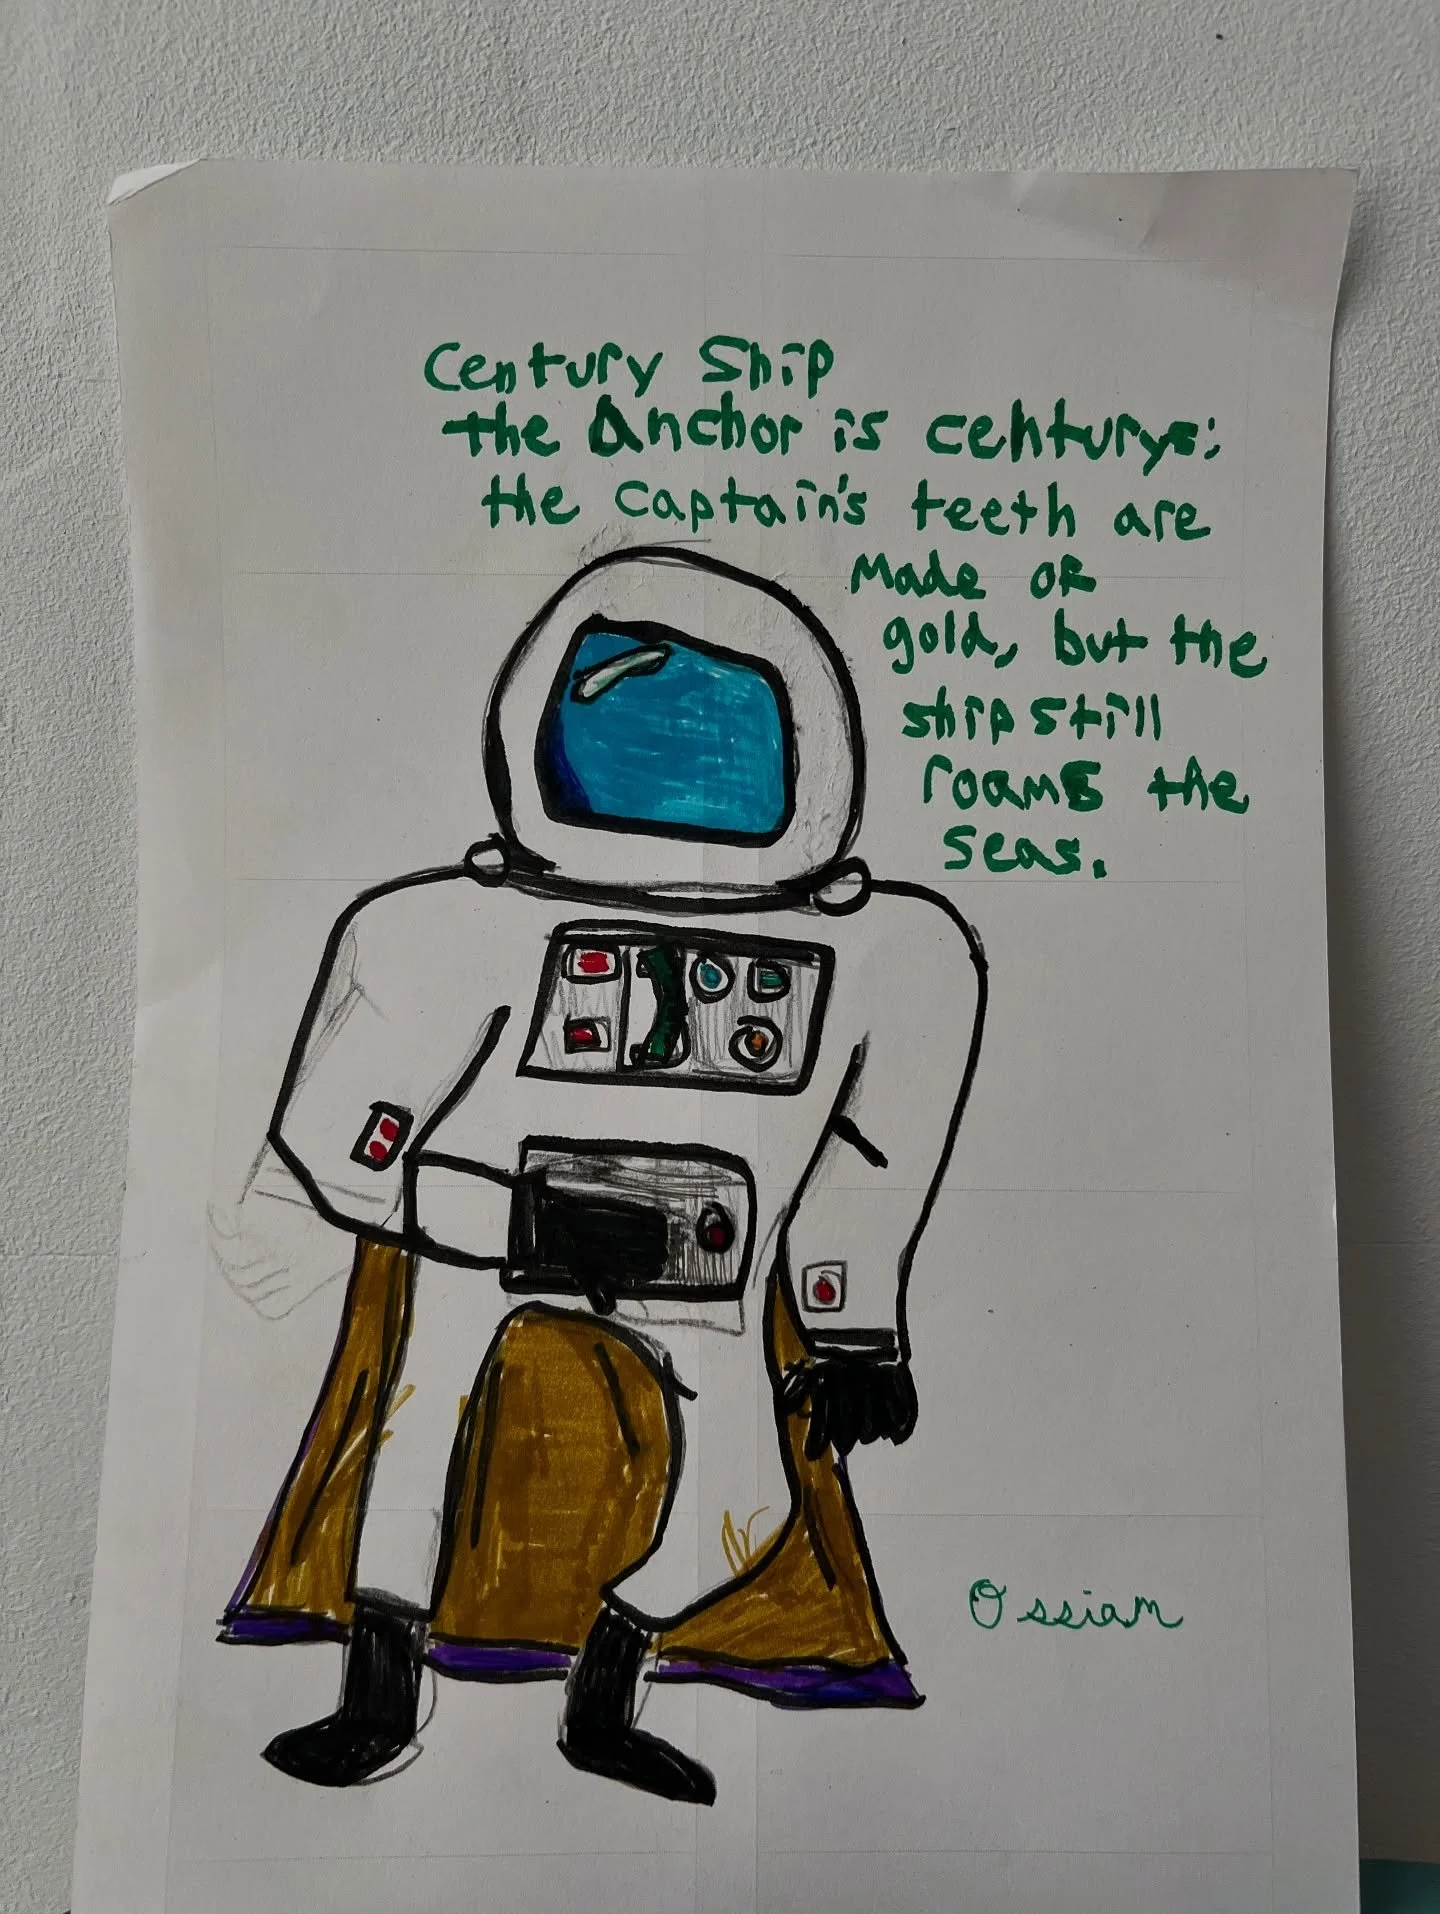 Century Ship
the Anchor is centurys;
the captain's teeth are
made of
gold, but the
ship still
roams the
seas.
Ossiam